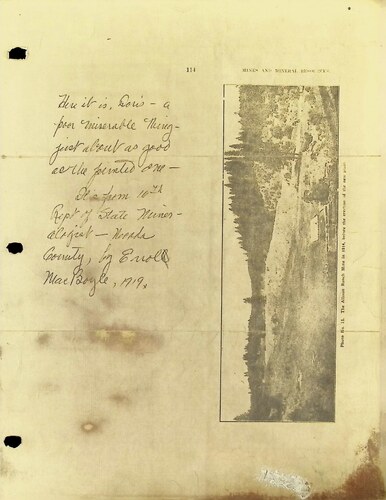 114
MINES AND MINERAL RESOURCES
Here it is, Doris – a
poor miserable thing –
just about as good
as the printed one –
It is from 16th
Rept of State Miner-
alogist – Nevada
County, by Errol
MacBoyle, 1919.
Photo No. 12. The Allison Ranch Mine in 1914, before the erection of the new plant.